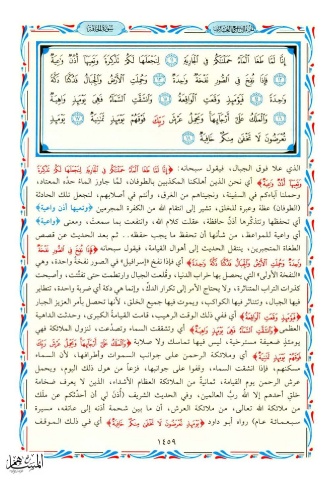 إِنَّا لَمَّا طَغَا ٱلْمَآءُ حَمَلْنَٰكُمْ فِى ٱلْجَارِيَةِ ﴿١١﴾ لِنَجْعَلَهَا لَكُمْ تَذْكِرَةً وَتَعِيَهَآ أُذُنٌ وَٰعِيَةٌ
﴿١٢﴾ فَإِذَا نُفِخَ فِى ٱلصُّورِ نَفْخَةٌ وَٰحِدَةٌ ﴿١٣﴾ وَحُمِلَتِ ٱلْأَرْضُ وَٱلْجِبَالُ فَدُكَّتَا دَكَّةً
وَٰحِدَةً ﴿١٤﴾ فَيَوْمَئِذٍ وَقَعَتِ ٱلْوَاقِعَةُ ﴿١٥﴾ وَٱنشَقَّتِ ٱلسَّمَآءُ فَهِىَ يَوْمَئِذٍ وَاهِيَةٌ
﴿١٦﴾ وَٱلْمَلَكُ عَلَىٰٓ أَرْجَآئِهَا وَيَحْمِلُ عَرْشَ رَبِّكَ فَوْقَهُمْ يَوْمَئِذٍ ثَمَٰنِيَةٌ ﴿١٧﴾ يَوْمَئِذٍ
تُعْرَضُونَ لَا تَخْفَىٰ مِنكُمْ خَافِيَةٌ ﴿١٨﴾
الذي علا فوق الجبال، فيقول سبحانه: ﴿إِنَّا لَمَّا طَغَا الْمَاءُ حَمَلْنَاكُمْ فِي الْجَارِيَةِ لِنَجْعَلَهَا لَكُمْ تَذْكِرَةً
وَتَعِيَهَا أُذُنٌ وَاعِيَةٌ﴾ أي نحن الذين أهلكنا المكذبين بالطوفان، لمَّا جاوز الماء حدَّه المعتاد،
وحملنا آباءكم في السفينة، ونجيناهم من الغرق، وأنتم في أصلابهم، لنجعل تلك الحادثة
(الطوفان) عظة وعبرة للخلق، تشير إلى انتقام الله من الكفرة المجرمين ﴿وتعيها أذن واعية﴾
أي تحفظها وتتذكَّرها أذنٌ حافظة، عقلت كلام الله، وانتفعت بما سمعت، ومعنى ﴿واعية﴾
أي واعية للمواعظ، من شأنها أن تحفظ ما يجب حفظه.. ثم بعد الحديث عن قصص
الطغاة المتجبرين، ينتقل الحديث إلى أهوال القيامة، فيقول سبحانه ﴿فَإِذَا نُفِخَ فِي الصُّورِ نَفْخَةٌ
وَاحِدَةٌ وَحُمِلَتِ الْأَرْضُ وَالْجِبَالُ فَدُكَّتَا دَكَّةً وَاحِدَةً﴾ أي فإذا نفخ «إسرافيل» في الصور نفخةً واحدة، وهي
«النفخة الأولى» التي يحصل بها خراب الدنيا، وقُلعت الجبال وارتطمت حتى تفتَّتت، وأصبحت
كذرات التراب المتناثرة، ولا يحتاج الأمر إلى تكرار الدكِّ، وإنما هي دكة أي ضربة واحدة، تتطاير
فيها الجبال، وتتناثر فيها الكواكب، ويموت فيها جميع الخلق، لأنها تحصل بأمر العزيز الجبار
﴿فَيَوْمَئِذٍ وَقَعَتِ الْوَاقِعَةُ﴾ أي ففي ذلك الوقت الرهيب، قامت القيامة الكبرى، وحدثت الداهية
العظمى ﴿وَانْشَقَّتِ السَّمَاءُ فَهِيَ يَوْمَئِذٍ وَاهِيَةٌ﴾ أي وتشققت السماء وتصدَّعت، لنزول الملائكة فهي
يومئذٍ ضعيفة مسترخية، ليس فيها تماسك ولا صلابة ﴿وَالْمَلَكُ عَلَى أَرْجَائِهَا وَيَحْمِلُ عَرْشَ رَبِّكَ
فَوْقَهُمْ يَوْمَئِذٍ ثَمَانِيَةٌ﴾ أي وملائكة الرحمن على جوانب السموات وأطرافها، لأن السماء
مسكنهم، فإذا انشقت السماء، وقفوا على جوانبها، فزعاً من هول ذلك اليوم، ويحمل
عرش الرحمن يوم القيامة، ثمانيةٌ من الملائكة العظام الأشداء، الذين لا يعرف ضخامة
خلقِ أحدهم إلا الله ربُّ العالمين، وفي الحديث الشريف (أُذن لي أن أحدِّثكم عن ملَك
من ملائكة الله تعالى، من ملائكة العرش، أن ما بين شحمة أذنه إلى عاتقه، مسيرة
سبعمائة عام) رواه أبو داود ﴿يَوْمَئِذٍ تُعْرَضُونَ لَا تَخْفَى مِنْكُمْ خَافِيَةٌ﴾ أي في ذلك الموقف
١٤٥٩